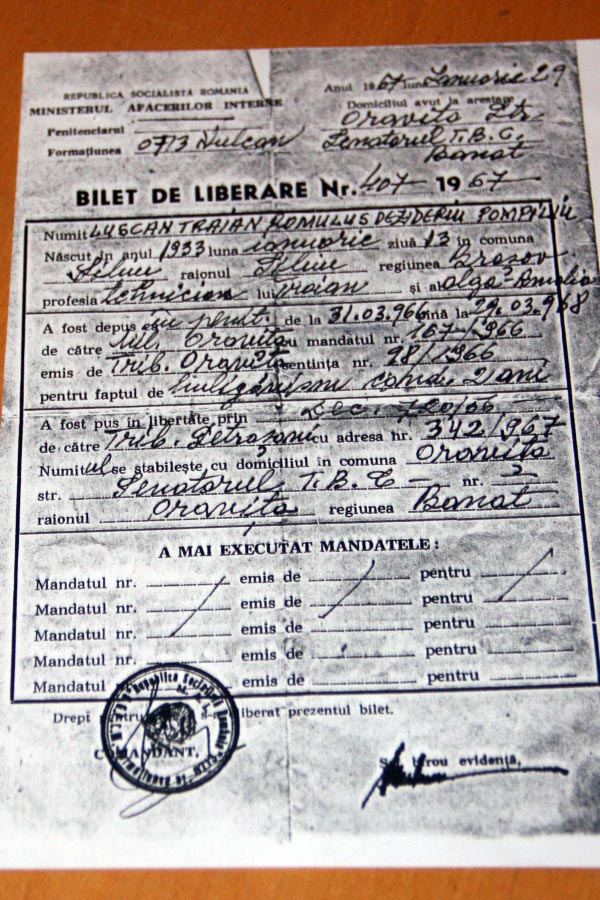 REPUBLICA SOCIALISTA ROMANIA
MINISTERUL AFACERILOR INTERNE
Penitenciarul
Formațiunea 0713 Vulcan
Anul 1967 luna Ianuarie 29
Domiciliul avut la arestare
Oravita Str.
Senatorul T.B.C.
Banat
BILET DE LIBERARE Nr. 407 - 1967
Numit LUSCAN TRAIAN ROMULUS DEZIDERIU POMPILIU
Născut in anul 1933 luna ianuarie ziuă 13 in comuna
raionul regiunea Brasov
profesia tehnician lui Traian și al Olga Amalia
A fost depus de la 31.03.966 până la 29.03.968
de către Oravita cu mandatul nr. 167/966
emis de Trib. Oravita sentința nr. 98/966
pentru faptul de huliganism cond. 2 ani
A fost pus in libertate prin Dec. 720/66
de către Trib. Petrosani cu adresa nr. 342/967
Numitul se stabilește cu domiciliul in comuna Oravita
str. Senatorul T.B.C - nr. 2
raionul Oravita regiunea Banat
A MAI EXECUTAT MANDATELE:
Mandatul nr. emis de pentru
Mandatul nr. emis de pentru
Mandatul nr. emis de pentru
Mandatul nr. emis de pentru
Mandatul nr. emis de pentru
Drept liberat prezentul bilet.
COMANDANT,
Birou evidență,
Republica Socialistă